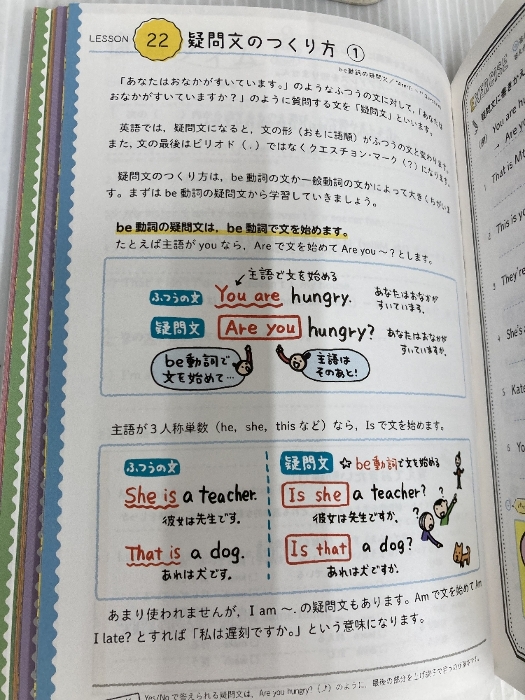 LESSON 22 疑問文のつくり方 ①
「あなたはおなかがすいています。」のようなふつうの文に対して、「あなたは
おなかがすいていますか？」のように質問する文を「疑問文」といいます。
英語では、疑問文になると、文の形（おもに語順）がふつうの文と変わります。
また、文の最後はピリオド（.）ではなくクエスチョン・マーク（?）になります。
疑問文のつくり方は、be 動詞の文か一般動詞の文かによって大きくちがいま
す。まずは be 動詞の疑問文から学習していきましょう。
be 動詞の疑問文は、be 動詞で文を始めます。
たとえば主語が you なら、Are で文を始めて Are you ～？とします。
主語で文を始める
ふつうの文 You are hungry. あなたはおなかが
すいています。
疑問文 Are you hungry? あなたはおなかが
すいていますか。
be動詞で
文を始めて…
主語は
そのあと！
主語が３人称単数（he, she, this など）なら、Is で文を始めます。
ふつうの文
She is a teacher.
彼女は先生です。
That is a dog.
あれは犬です。
疑問文 ☆be動詞で文を始める
Is she a teacher?
彼女は先生ですか。
Is that a dog?
あれは犬ですか。
? ?
あまり使われませんが、I am ～. の疑問文もあります。Am で文を始めて Am
I late? とすれば「私は遅刻ですか。」という意味になります。
Yes/No で答えられる疑問文は、Are you hungry? (⤴) のように、最後の部分を上げ調子で
You are h
→ Are yo
That is Mt
2 This is yo
3 They're
4 She's
5 Kate
6 Yo